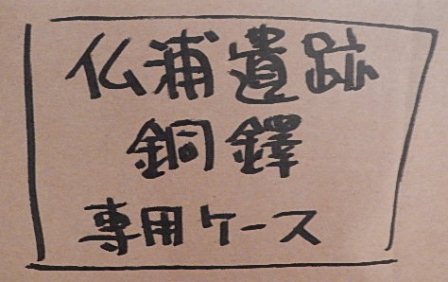 仏浦遺跡
銅鐸
専用ケース